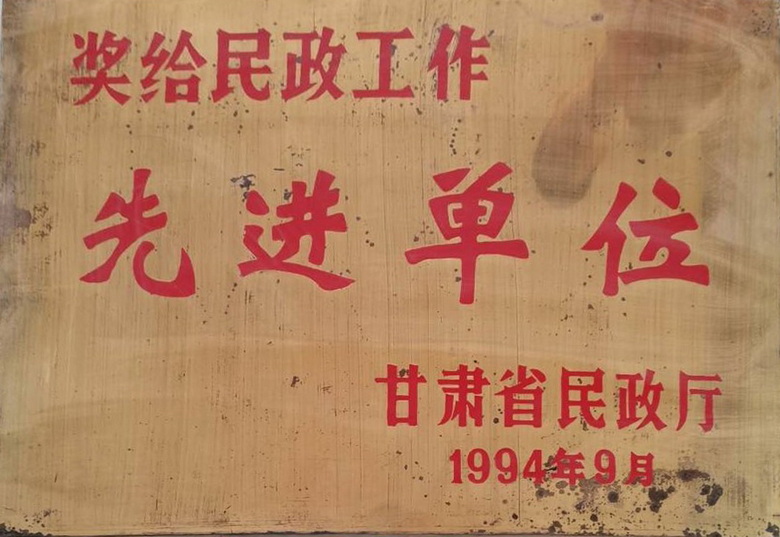 奖给民政工作
先进单位
甘肃省民政厅
1994年9月